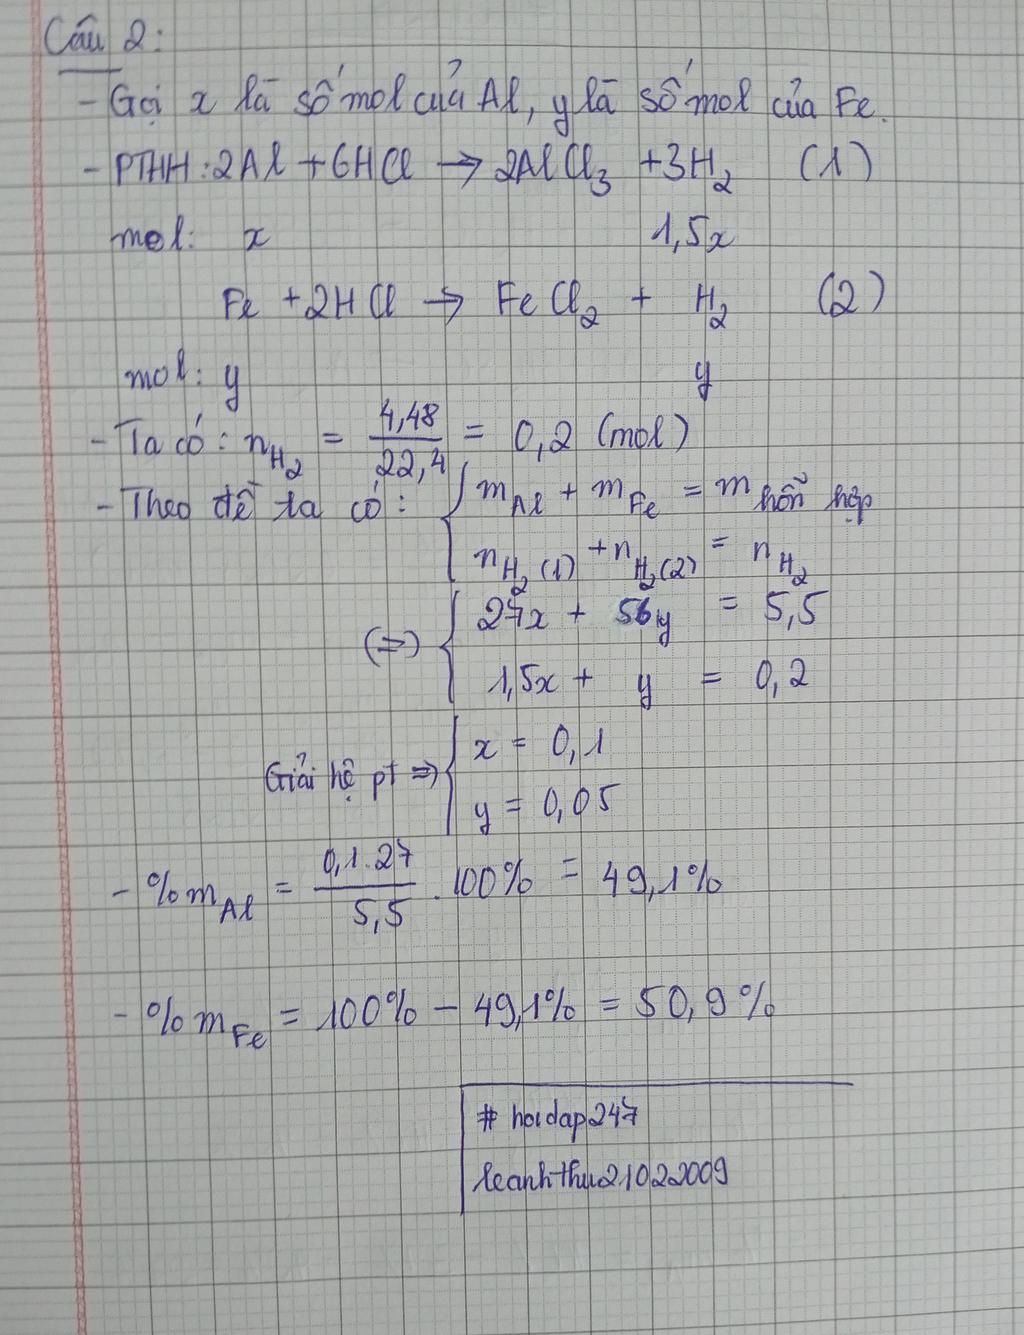 Câu 2:
- Gọi x là số mol của Al, y là số mol của Fe.
- PTHH: 2Al + 6HCl → 2AlCl₃ + 3H₂ (1)
mol: x 1,5x
Fe + 2HCl → FeCl₂ + H₂ (2)
mol: y y
- Ta có: n_H₂ = 4,48/22,4 = 0,2 (mol)
- Theo đề ta có: { m_Al + m_Fe = m hỗn hợp
n_H₂(1) + n_H₂(2) = n_H₂
(=>) { 27x + 56y = 5,5
1,5x + y = 0,2
Giải hệ pt => { x = 0,1
y = 0,05
- %m_Al = 0,1.27/5,5 . 100% = 49,1%
- %m_Fe = 100% - 49,1% = 50,9%
# hoidap247
leanhthu21022009